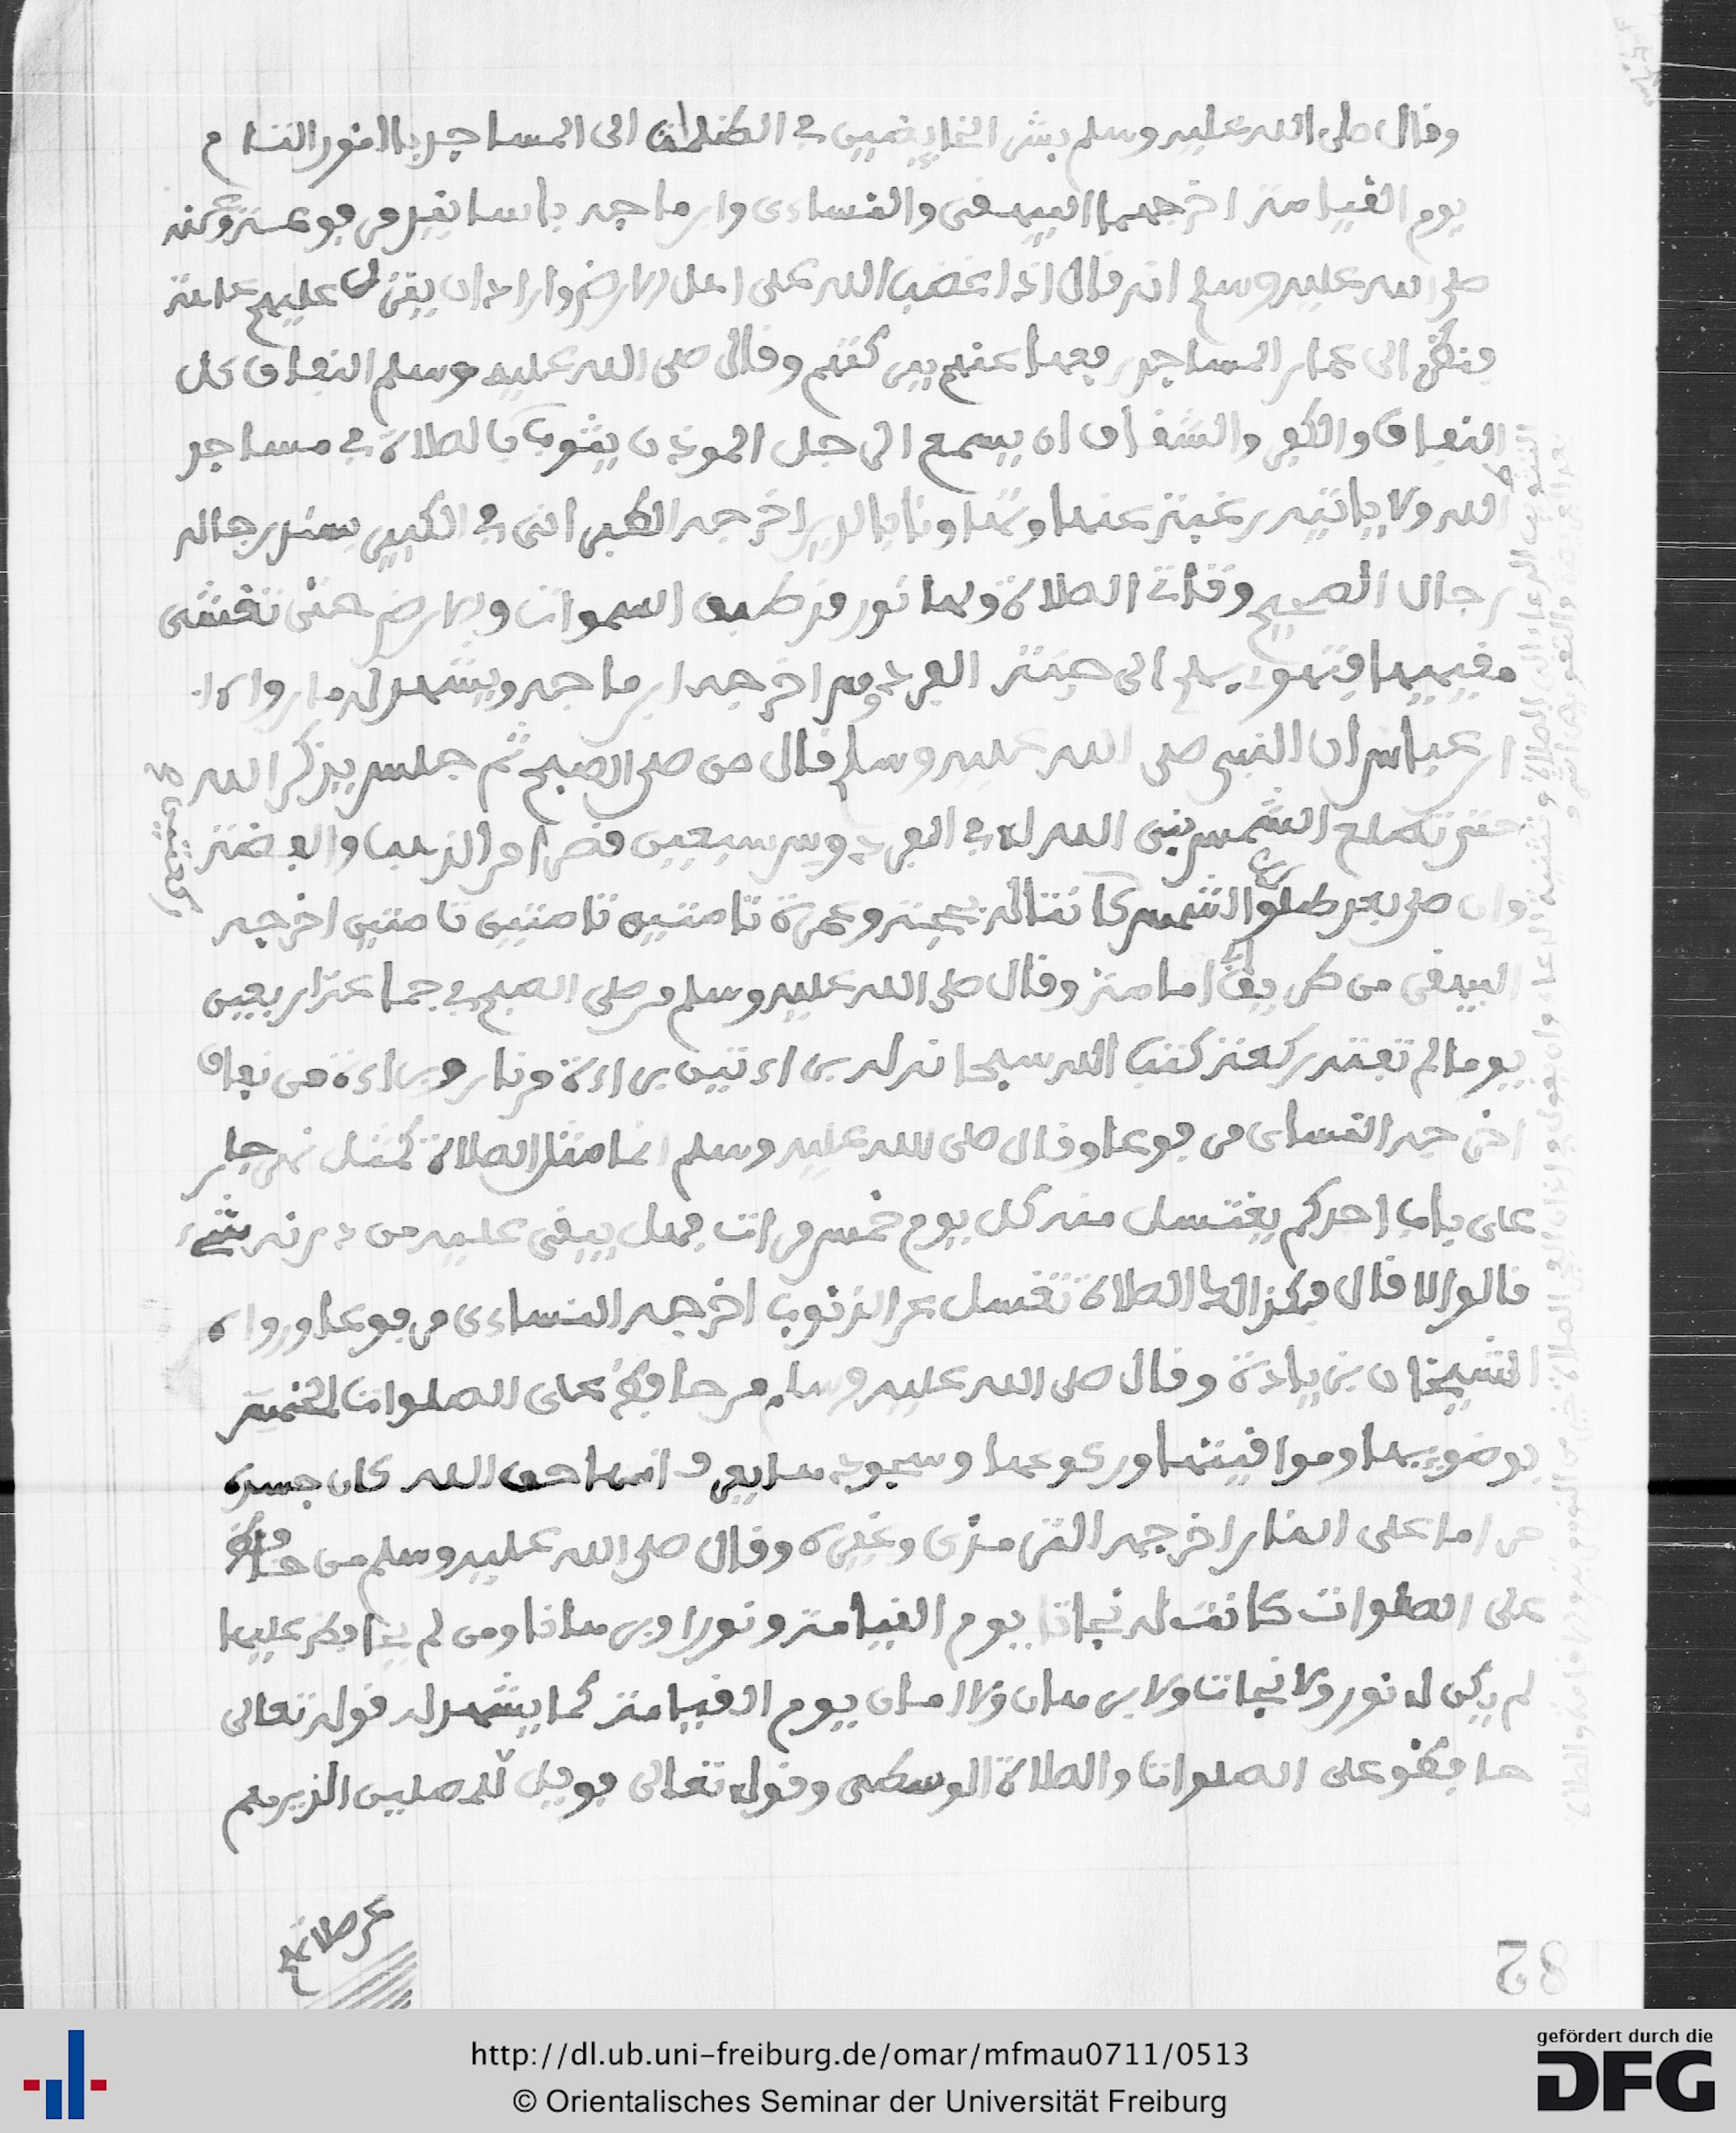 وقال صلى الله عليه وسلم بشر الخايضين في الظلمات الى المساجد بالنور التام
يوم القيامة اخرجهما البيهقي والنساءى وابن ماجه باسانيد مرفوعة وعنه
صلى الله عليه وسلم انه قال اذا غضب الله على اهل الارض واراد ان ينزل عليهم عاهة
فنظر الى عمار المساجد رفعها عنهم ببركتهم وقال صلى الله عليه وسلم النفاق كل
النفاق والكفر والشقاق ان يسمع الرجل الموذن يثوب بالصلاة في مساجد
الله ولا ياتيه رغبة عنها وتهاونا بالدين اخرجه الطبراني في الكبير بسند رجاله
رجال الصحيح وقات الصلاة ولها نور قد طبق السموات والارض حتى تغشى
مقيمها فتهوى به الى جنة الفردوس اخرجه ابن ماجه ويشهد له ما رواه ا
ابن عباس ان النبي صلى الله عليه وسلم قال من صلى الصبح ثم جلس يذكر الله
حتى تطلع الشمس بنى الله له في الفردوس سبعين قصرا من الذهب والفضة
وان صلى بعد طلوع الشمس كانتا له بحجة وعمرة تامتين تامتين تامتين اخرجه
البيهقي من طريق ابي امامة وقال صلى الله عليه وسلم من صلى الصبح في جماعة اربعين
يوما لم تفته ركعة كتب الله سبحانه له براءتين براءة من نار وبراءة من نفاق
اخرجه النساءى مرفوعا وقال صلى الله عليه وسلم انما مثل الصلاة كمثل نهر جار
على باب احدكم يغتسل منه كل يوم خمس مرات فهل يبقى عليه من درنه شيء
قالوا لا قال فكذالك الصلاة تغسل عن الذنوب اخرجه النساءى مرفوعا ورواه
الشيخان بزيادة وقال صلى الله عليه وسلم من حافظ على الصلوات الخمس
بوضوءيها ومواقيتها وركوعها وسجودها يعرف انها حق الله كان جسده
حراما على النار اخرجه الترمذى وغيره وقال صلى الله عليه وسلم من حافظ
على الصلوات كانت له نجاتا يوم القيامة ونورا وبرهانا ومن لم يحافظ عليها
لم يكن له نور ولا نجات ولا برهان ولا امان يوم القيامة كما يشهد له قوله تعالى
حافظو على الصلوات والصلاة الوسطى وقوله تعالى فويل للمصلين الذين هم
عن صلاتهم
82
http://dl.ub.uni-freiburg.de/omar/mfmau0711/0513
© Orientalisches Seminar der Universität Freiburg
gefördert durch die
DFG